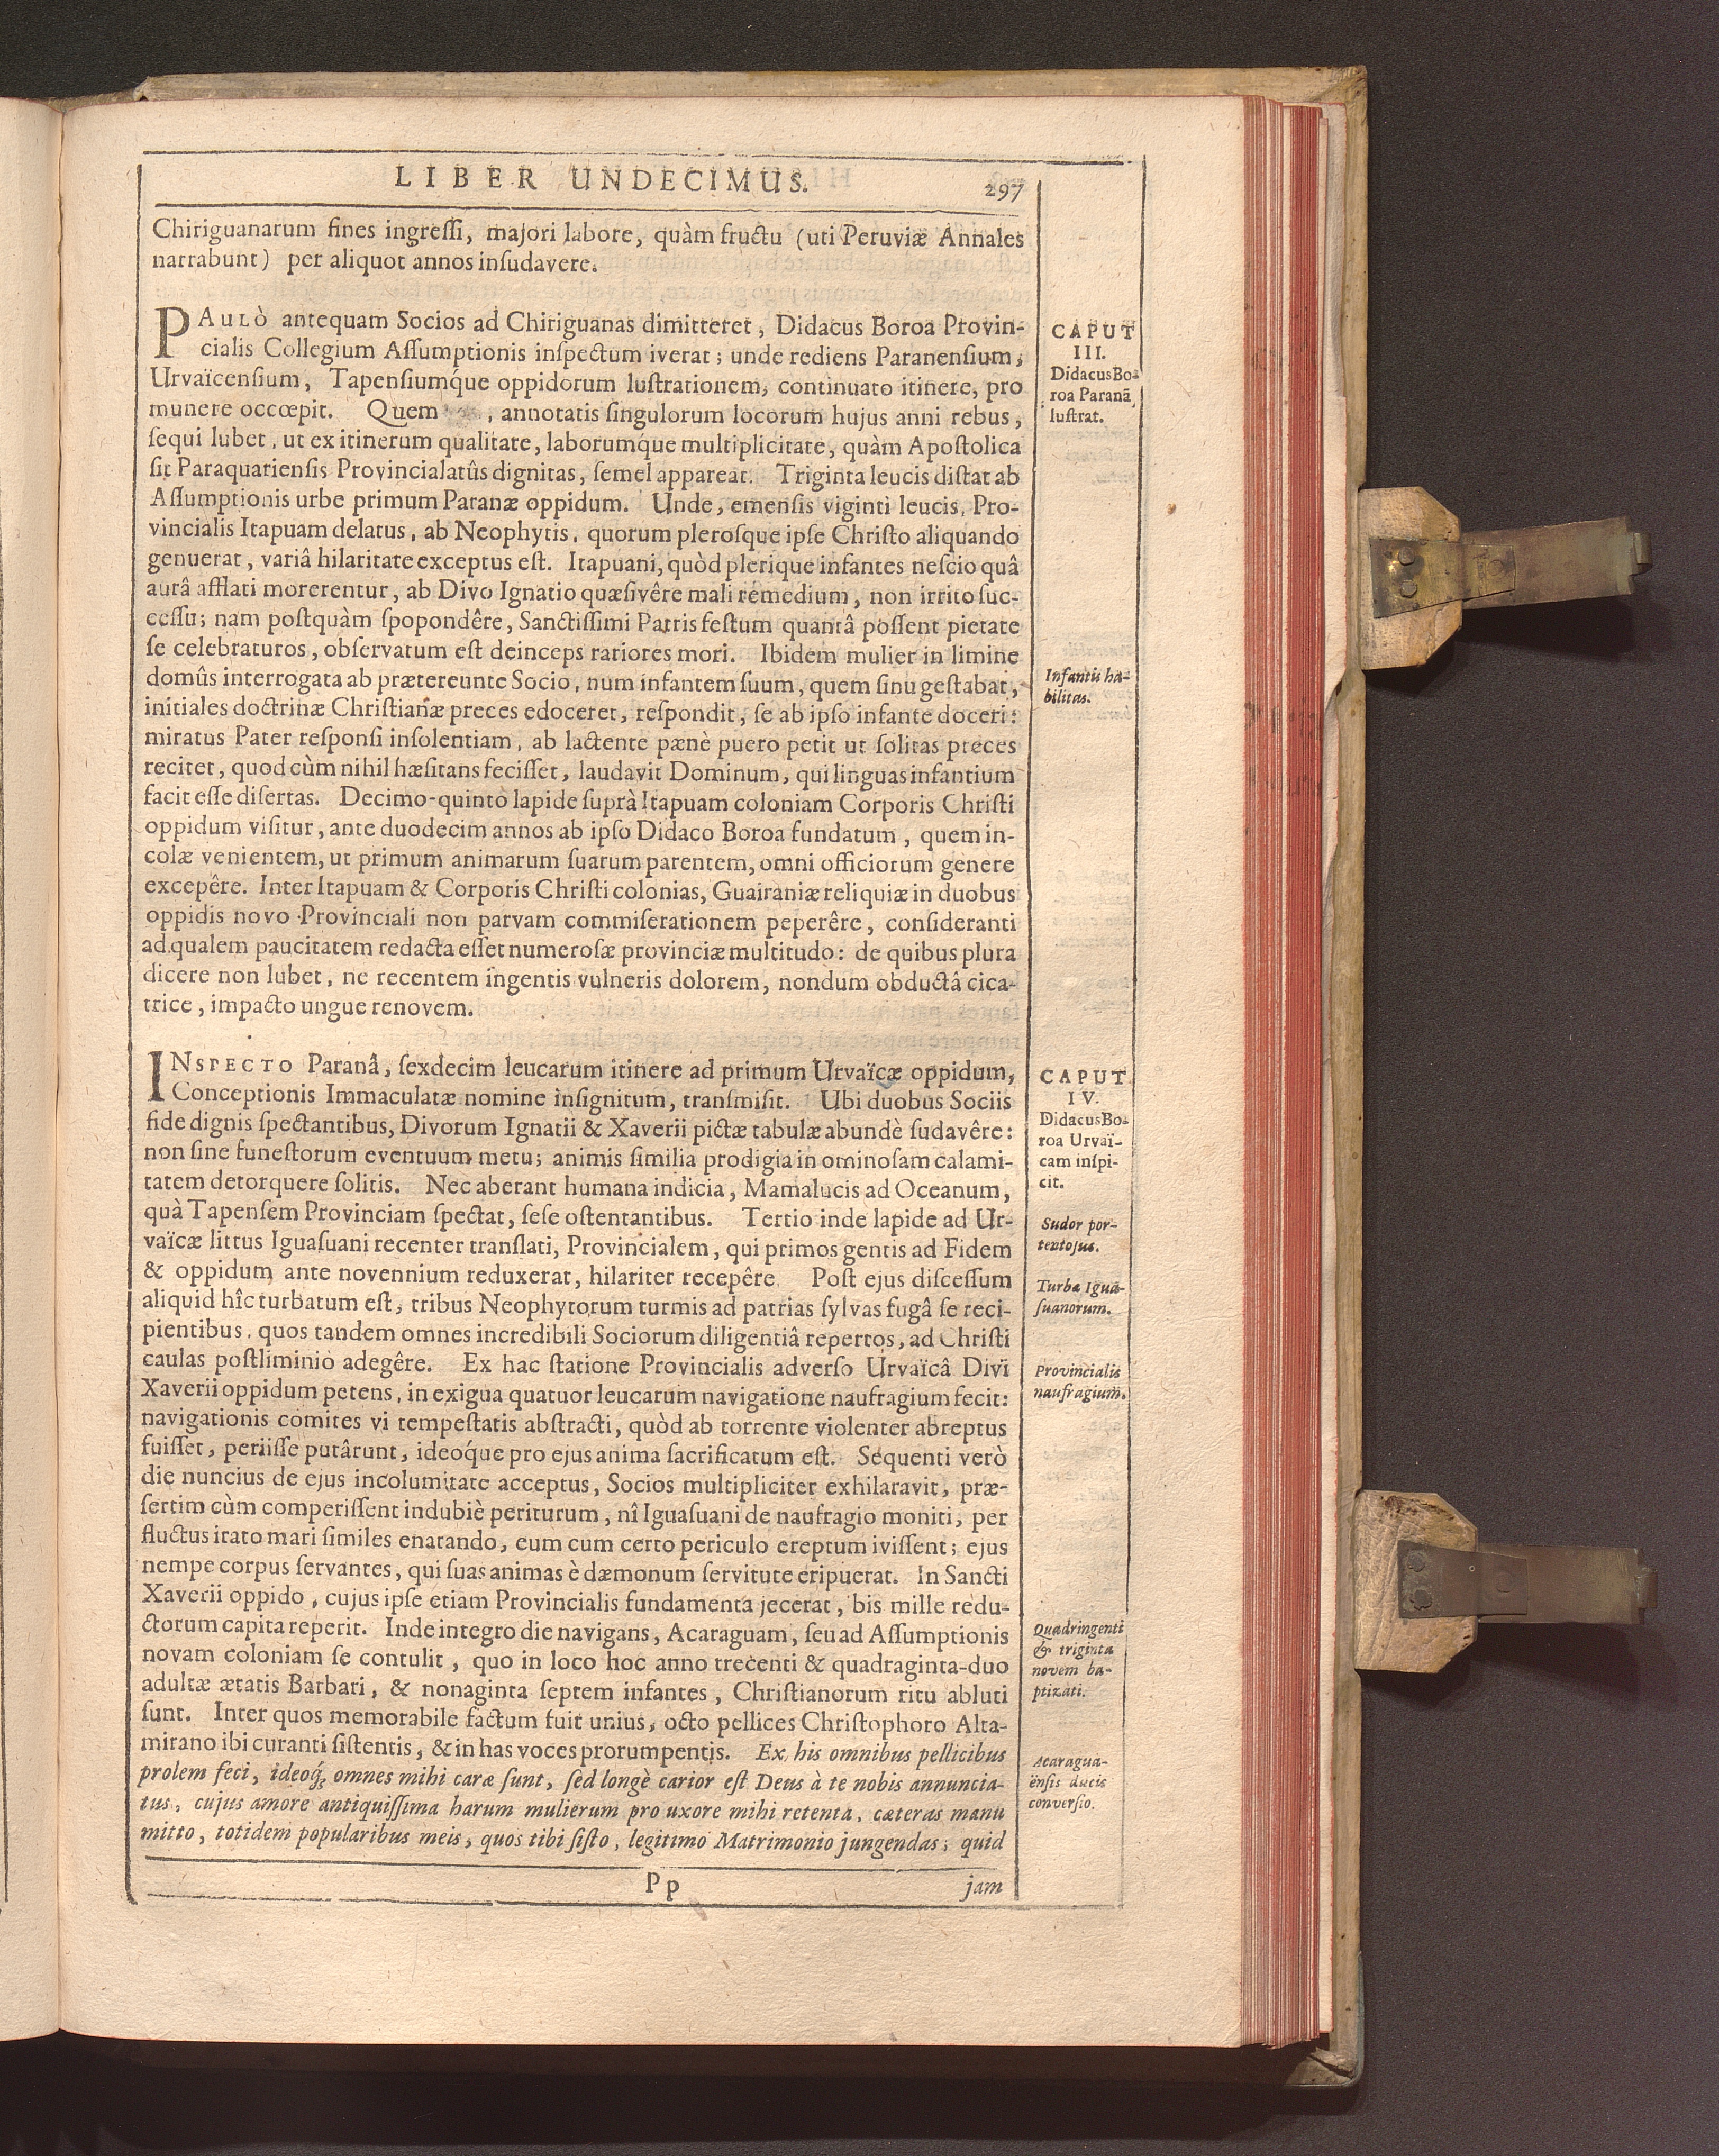 LIBER UNDECIMUS.
297
Chiriguanarum fines ingreſſi, majori labore, quàm fructu (uti Peruviæ Annales
narrabunt) per aliquot annos inſudavere.
CAPUT
III.
Didacus Bo-
roa Paranã
luſtrat.
PAULÒ antequam Socios ad Chiriguanas dimitteret, Didacus Boroa Provin-
cialis Collegium Aſſumptionis inſpectum iverat; unde rediens Paranenſium,
Urvaïcenſium, Tapenſiumq́ue oppidorum luſtrationem, continuato itinere, pro
munere occœpit. Quem , annotatis ſingulorum locorum hujus anni rebus,
ſequi lubet, ut ex itinerum qualitate, laborumque multiplicitate, quàm Apoſtolica
ſit Paraquarienſis Provincialatûs dignitas, ſemel appareat. Triginta leucis diſtat ab
Aſſumptionis urbe primum Paranæ oppidum. Unde, emenſis viginti leucis, Pro-
vincialis Itapuam delatus, ab Neophytis, quorum pleroſque ipſe Chriſto aliquando
genuerat, variâ hilaritate exceptus eſt. Itapuani, quòd plerique infantes neſcio quâ
aurâ afflati morerentur, ab Divo Ignatio quæſivêre mali remedium, non irrito ſuc-
ceſſu; nam poſtquàm ſpopondêre, Sanctiſſimi Patris feſtum quantâ poſſent pietate
ſe celebraturos, obſervatum eſt deinceps rariores mori. Ibidem mulier in limine
domûs interrogata ab prætereunte Socio, num infantem ſuum, quem ſinu geſtabat,
initiales doctrinæ Chriſtianæ preces edoceret, reſpondit, ſe ab ipſo infante doceri:
miratus Pater reſponſi inſolentiam, ab lactente pænè puero petit ut ſolitas preces
recitet, quod cùm nihil hæſitans feciſſet, laudavit Dominum, qui linguas infantium
facit eſſe diſertas. Decimo-quinto lapide ſuprà Itapuam coloniam Corporis Chriſti
oppidum viſitur, ante duodecim annos ab ipſo Didaco Boroa fundatum, quem in-
colæ venientem, ut primum animarum ſuarum parentem, omni officiorum genere
excepêre. Inter Itapuam & Corporis Chriſti colonias, Guairaniæ reliquiæ in duobus
oppidis novo Provinciali non parvam commiſerationem peperêre, conſideranti
ad qualem paucitatem redacta eſſet numeroſæ provinciæ multitudo: de quibus plura
dicere non lubet, ne recentem ingentis vulneris dolorem, nondum obductâ cica-
trice, impacto ungue renovem.
Infantis ha-
bilitas.
CAPUT
IV.
Didacus Bo-
roa Urvaï-
cam inſpi-
cit.
INSPECTO Paranâ, ſexdecim leucarum itinere ad primum Urvaïcæ oppidum,
Conceptionis Immaculatæ nomine inſignitum, tranſmiſit. Ubi duobus Sociis
fide dignis ſpectantibus, Divorum Ignatii & Xaverii pictæ tabulæ abundè ſudavêre:
non ſine funeſtorum eventuum metu; animis ſimilia prodigia in ominoſam calami-
tatem detorquere ſolitis. Nec aberant humana indicia, Mamalucis ad Oceanum,
quà Tapenſem Provinciam ſpectat, ſeſe oſtentantibus. Tertio inde lapide ad Ur-
vaïcæ littus Iguaſuani recenter tranſlati, Provincialem, qui primos gentis ad Fidem
& oppidum ante novennium reduxerat, hilariter recepêre. Poſt ejus diſceſſum
aliquid hîc turbatum eſt, tribus Neophytorum turmis ad patrias ſylvas fugâ ſe reci-
pientibus, quos tandem omnes incredibili Sociorum diligentiâ repertos, ad Chriſti
caulas poſtliminio adegêre. Ex hac ſtatione Provincialis adverſo Urvaïcâ Divi
Xaverii oppidum petens, in exigua quatuor leucarum navigatione naufragium fecit:
navigationis comites vi tempeſtatis abſtracti, quòd ab torrente violenter abreptus
fuiſſet, periiſſe putârunt, ideoq́ue pro ejus anima ſacrificatum eſt. Sequenti verò
die nuncius de ejus incolumitate acceptus, Socios multipliciter exhilaravit, præ-
ſertim cùm comperiſſent indubiè periturum, nî Iguaſuani de naufragio moniti, per
fluctus irato mari ſimiles enatando, eum cum certo periculo ereptum iviſſent; ejus
nempe corpus ſervantes, qui ſuas animas è dæmonum ſervitute eripuerat. In Sancti
Xaverii oppido, cujus ipſe etiam Provincialis fundamenta jecerat, bis mille redu-
ctorum capita reperit. Inde integro die navigans, Acaraguam, ſeu ad Aſſumptionis
novam coloniam ſe contulit, quo in loco hoc anno trecenti & quadraginta-duo
adultæ ætatis Barbari, & nonaginta ſeptem infantes, Chriſtianorum ritu abluti
ſunt. Inter quos memorabile factum fuit unius, octo pellices Chriſtophoro Alta-
mirano ibi curanti ſiſtentis, & in has voces prorumpentis. Ex his omnibus pellicibus
prolem feci, ideoq́; omnes mihi caræ ſunt, ſed longè carior eſt Deus à te nobis annuncia-
tus, cujus amore antiquiſſima harum mulierum pro uxore mihi retenta, cæteras manu
mitto, totidem popularibus meis, quos tibi ſiſto, legitimo Matrimonio jungendas; quid
Sudor por-
tentoſus.
Turbæ Igua-
ſuanorum.
Provincialis
naufragium.
Quadringenti
& triginta
novem ba-
ptizati.
Acaragua-
ënſis ducis
converſio.
Pp
jam